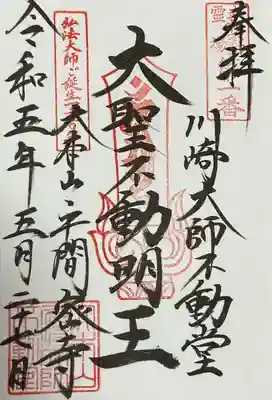 奉拝
川崎大師不動堂
大聖不動明王
大本山平間寺
令和五年五月二十七日
弘法大師ご誕生
霊
一番